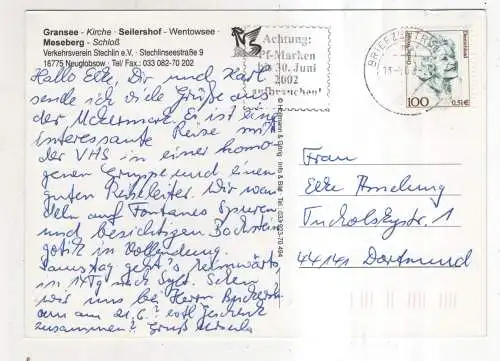 Gransee - Kirche · Seilershof - Wentowsee ·
Meseberg - Schloß
Verkehrsverein Stechlin e.V. · Stechlinseestraße 9
16775 Neuglobsow · Tel/ Fax.: 033 082-70 202
Achtung:
Pf-Marken
bis 30. Juni
2002
aufbrauchen!
BRIEFZENTRUM
Deutschland
100
0,51€
Hallo Elke, Dir und Karl
sende ich viele Grüße aus
der Uckermark. Es ist eine
interessante Reise mit
der VHS in einer homo
genen Gruppe und einem
guten Reiseleiter. Wir wan
deln auf Fontanes Spuren
und besichtigen Backstein
gotik in Vollendung.
Samstag geht's heimwärts,
in 14 Tg nach Sylt. Sehen
wir uns bei Herrn
am 21.6.? evtl Geschenk
zusammen? Gruß
Frau
Elke Amelung
Tucholskystr. 1
44141 Dortmund